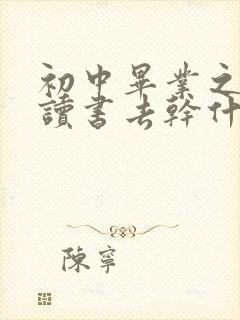 初中畢業之
讀書去幹什
陳寧